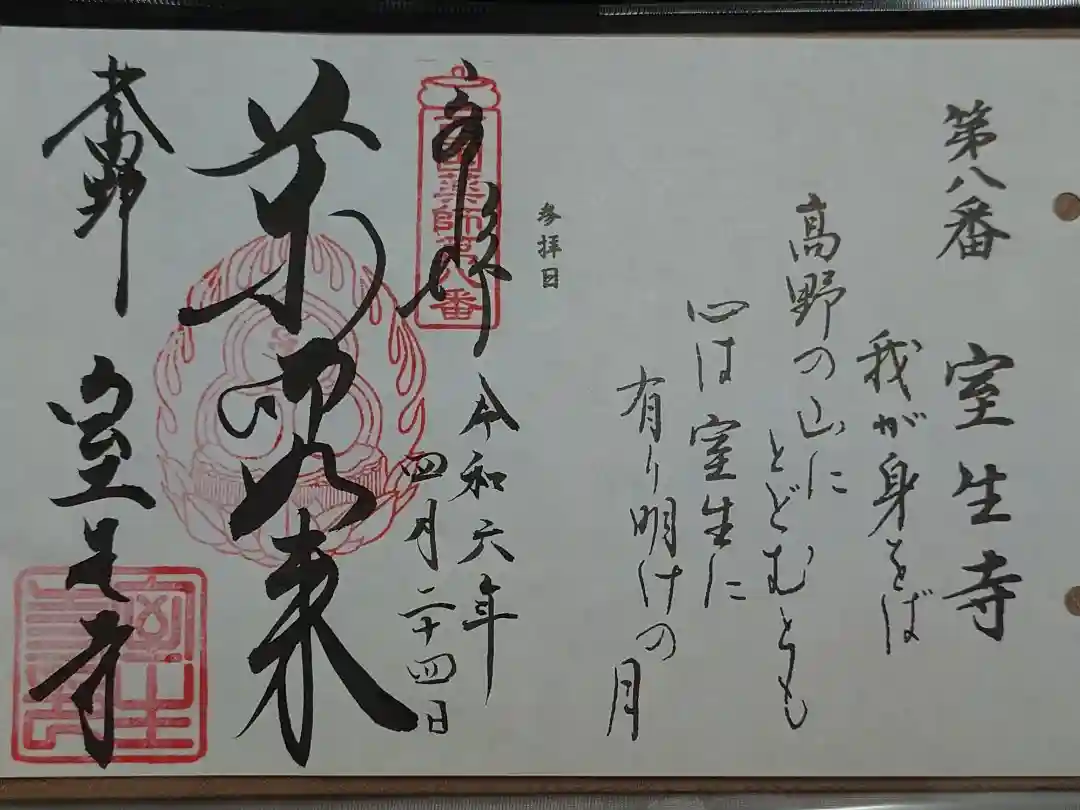 第八番 室生寺
我が身をば
高野の山に
とどむとも
心は室生に
有り明けの月
参拝日
奉拝
西国薬師第八番
令和六年
四月二十四日
薬師如来
女人高野
室生寺